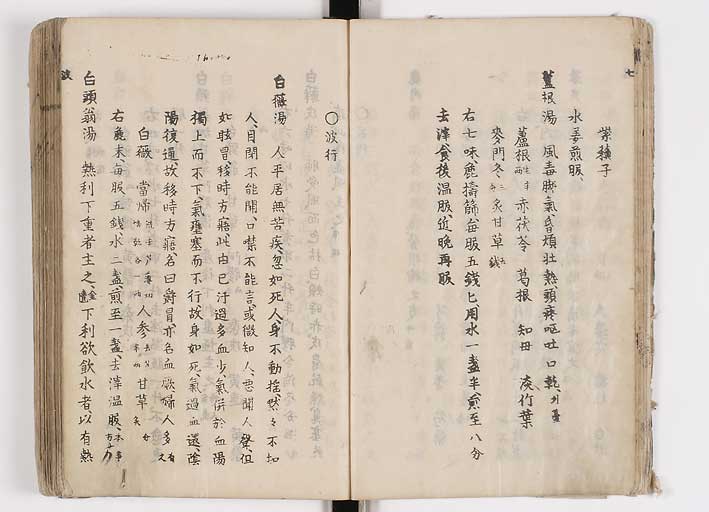 紫蘓子
水姜煎服、
蘆根湯 風毒脚氣昏煩壮熱頭痛嘔吐口乾
蘆根 赤茯苓 葛根 知母 淡竹葉
麥門冬 炙甘草
右七味、麁擣篩、毎服五錢匕、用水一盞半、煎至八分
去滓食後温服、近晩再服
七
〇波行
白薇湯 人平居無苦疾、忽如死人、身不動揺、默々不知
人、目閉不能開、口噤不能言、或微知人、悪聞人聲、但
如眩冒、移時方寤、此由已汗過多、血少氣併於血、陽
獨上而不下、氣壅塞而不行、故身如死、氣過血還、陰
陽復通、故移時方寤、名曰欝冒、亦名血厥、婦人多有
白薇 當帰 人参 甘草
右麁末、毎服五錢、水二盞、煎至一盞、去滓温服、本事方
白頭翁湯 熱利下重者主之 下利欲飲水者以有熱
波